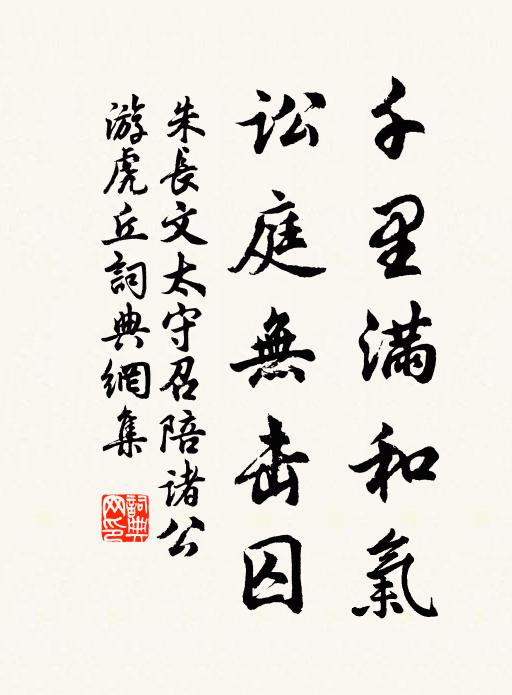 千里滿和氣
訟庭無击囚
朱長文太守召陪諸公
游虎丘詞典網集
詞典
网印